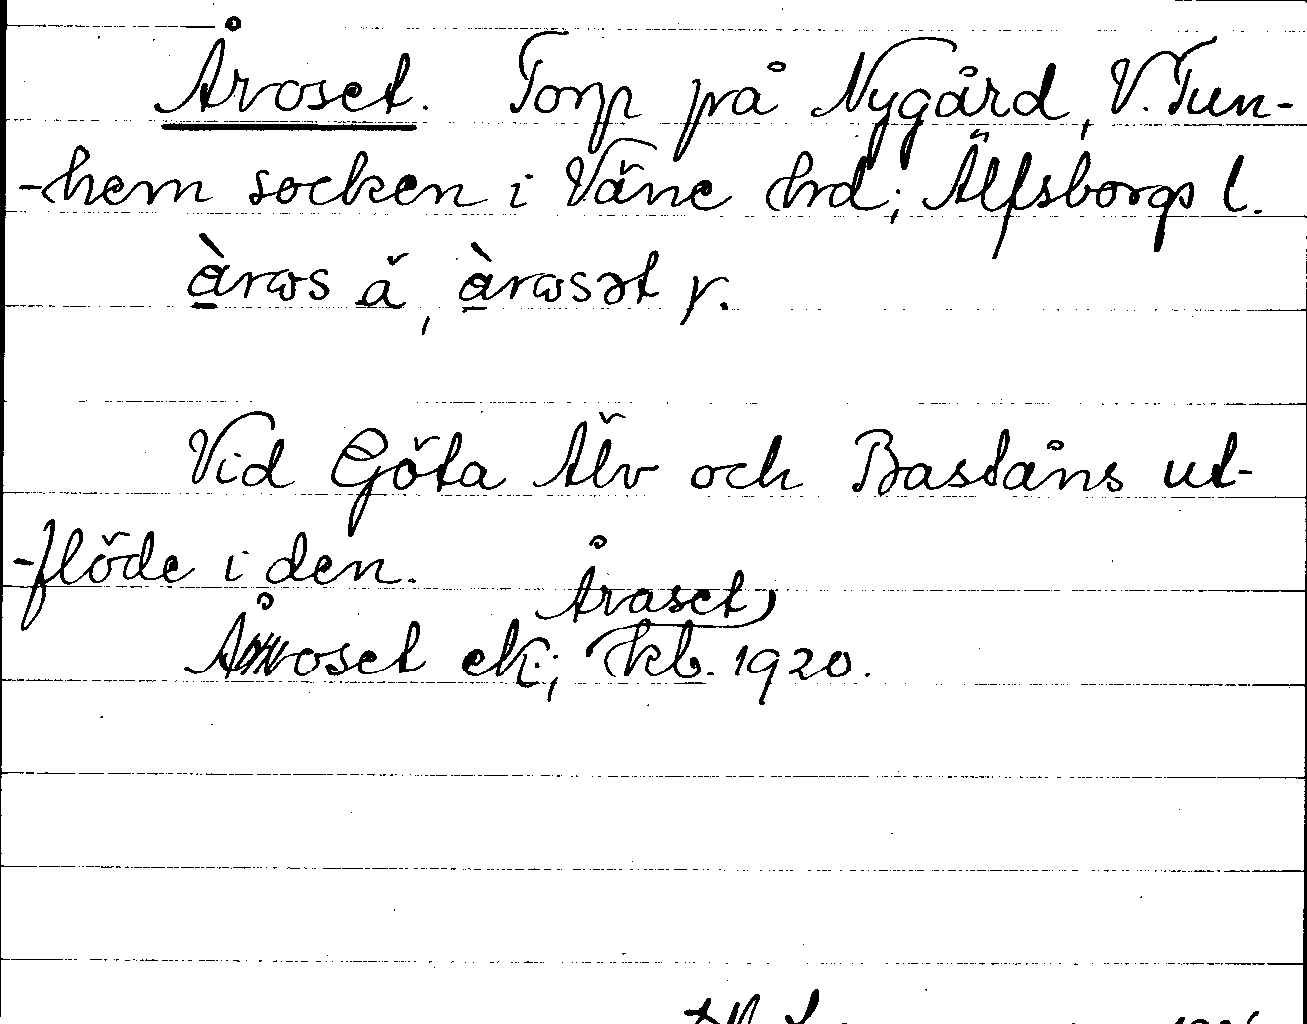 Åroset. Torp på Nygård, V. Tun-
-hem socken i Väne hrd; Älfsborgs l.
å̀ros ä, å̀rosət γ.
Vid Göta Älv och Baståns ut-
-flöde i den.
Åraset,
Åroset ek.; kb. 1920.